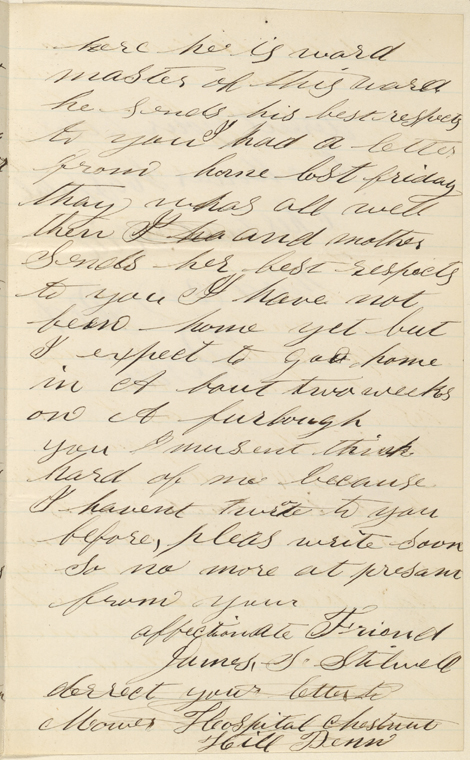 here he is ward
master of this ward
he sends his best respects
to you I had a letter
from home lost friday
thay whas all well
then I ha and mother
sends her best respects
to you I have not
bean home yet but
I expect to goa home
in A bout two weeks
on A furlough
you musent think
hard of me because
I havent wrote to you
before, pleas write soon
So no more at presant
from your
affectionate Friend
James. S. Stilwell
derrect your letter to
Mower Hospital Chestnut
Hill Penn